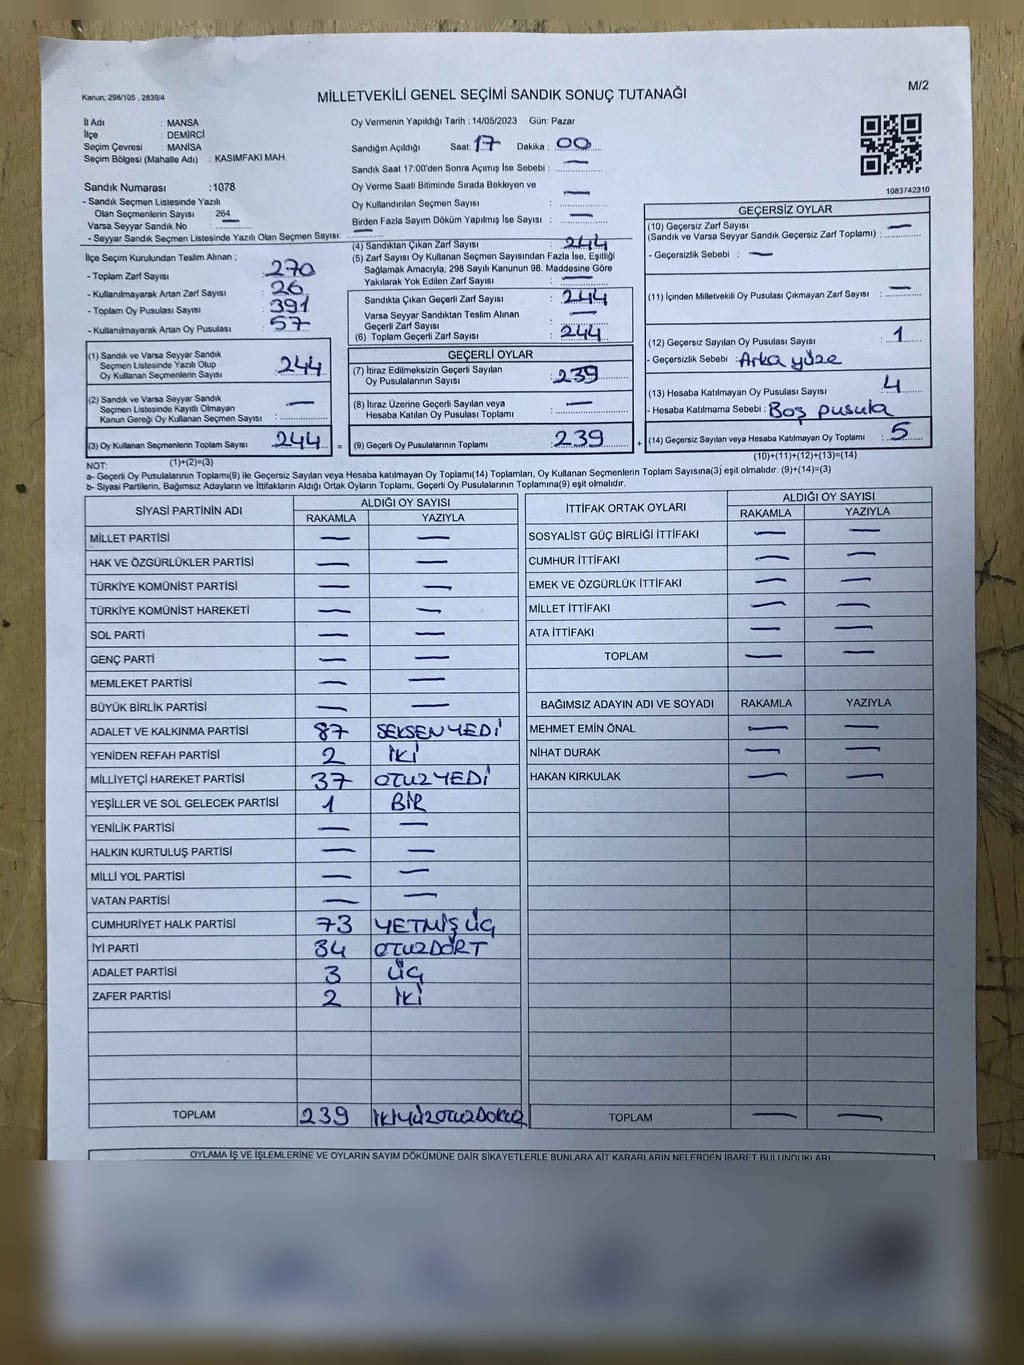 Kanun, 298/105 , 2839/4
MİLLETVEKİLİ GENEL SEÇİMİ SANDIK SONUÇ TUTANAĞI
M/2
İl Adı : MANSA
İlçe : DEMİRCİ
Seçim Çevresi : MANİSA
Seçim Bölgesi (Mahalle Adı) : KASIMFAKI MAH.
Sandık Numarası :1078
- Sandık Seçmen Listesinde Yazılı
Olan Seçmenlerin Sayısı : 264
Varsa Seyyar Sandık No : —
- Seyyar Sandık Seçmen Listesinde Yazılı Olan Seçmen Sayısı: —
İlçe Seçim Kurulundan Teslim Alınan ;
- Toplam Zarf Sayısı : 270
- Kullanılmayarak Artan Zarf Sayısı : 26
- Toplam Oy Pusulası Sayısı : 391
- Kullanılmayarak Artan Oy Pusulası : 57
(1) Sandık ve Varsa Seyyar Sandık
Seçmen Listesinde Yazılı Olup
Oy Kullanan Seçmenlerin Sayısı : 244
(2) Sandık ve Varsa Seyyar Sandık
Seçmen Listesinde Kayıtlı Olmayan
Kanun Gereği Oy Kullanan Seçmen Sayısı : —
(3) Oy Kullanan Seçmenlerin Toplam Sayısı : 244 =
(1)+(2)=(3)
Oy Vermenin Yapıldığı Tarih : 14/05/2023 Gün: Pazar
Sandığın Açıldığı Saat: 17 Dakika : 00
Sandık Saat 17:00'den Sonra Açımış İse Sebebi : —
Oy Verme Saati Bitiminde Sırada Bekleyen ve
Oy Kullandırılan Seçmen Sayısı : —
Birden Fazla Sayım Döküm Yapılmış İse Sayısı : —
(4) Sandıktan Çıkan Zarf Sayısı : 244
(5) Zarf Sayısı Oy Kullanan Seçmen Sayısından Fazla İse, Eşitliği
Sağlamak Amacıyla; 298 Sayılı Kanunun 98. Maddesine Göre
Yakılarak Yok Edilen Zarf Sayısı : —
Sandıkta Çıkan Geçerli Zarf Sayısı : 244
Varsa Seyyar Sandıktan Teslim Alınan
Geçerli Zarf Sayısı : —
(6) Toplam Geçerli Zarf Sayısı : 244
GEÇERLİ OYLAR
(7) İtiraz Edilmeksizin Geçerli Sayılan
Oy Pusulalarının Sayısı : 239
(8) İtiraz Üzerine Geçerli Sayılan veya
Hesaba Katılan Oy Pusulası Toplamı : —
(9) Geçerli Oy Pusulalarının Toplamı : 239 +
1083742310
GEÇERSİZ OYLAR
(10) Geçersiz Zarf Sayısı
(Sandık ve Varsa Seyyar Sandık Geçersiz Zarf Toplamı) : —
- Geçersizlik Sebebi : —
(11) İçinden Milletvekili Oy Pusulası Çıkmayan Zarf Sayısı : —
(12) Geçersiz Sayılan Oy Pusulası Sayısı : 1
- Geçersizlik Sebebi : Arka yüze
(13) Hesaba Katılmayan Oy Pusulası Sayısı : 4
- Hesaba Katılmama Sebebi : Boş pusula
(14) Geçersiz Sayılan veya Hesaba Katılmayan Oy Toplamı : 5
(10)+(11)+(12)+(13)=(14)
NOT:
a- Geçerli Oy Pusulalarının Toplamı(9) ile Geçersiz Sayılan veya Hesaba katılmayan Oy Toplamı(14) Toplamları, Oy Kullanan Seçmenlerin Toplam Sayısına(3) eşit olmalıdır. (9)+(14)=(3)
b- Siyasi Partilerin, Bağımsız Adayların ve İttifakların Aldığı Ortak Oyların Toplamı, Geçerli Oy Pusulalarının Toplamına(9) eşit olmalıdır.
SİYASİ PARTİNİN ADI ALDIĞI OY SAYISI
RAKAMLA YAZIYLA
MİLLET PARTİSİ — —
HAK VE ÖZGÜRLÜKLER PARTİSİ — —
TÜRKİYE KOMÜNİST PARTİSİ — —
TÜRKİYE KOMÜNİST HAREKETİ — —
SOL PARTİ — —
GENÇ PARTİ — —
MEMLEKET PARTİSİ — —
BÜYÜK BİRLİK PARTİSİ — —
ADALET VE KALKINMA PARTİSİ 87 SEKSENYEDİ
YENİDEN REFAH PARTİSİ 2 İKİ
MİLLİYETÇİ HAREKET PARTİSİ 37 OTUZYEDİ
YEŞİLLER VE SOL GELECEK PARTİSİ 1 BİR
YENİLİK PARTİSİ — —
HALKIN KURTULUŞ PARTİSİ — —
MİLLİ YOL PARTİSİ — —
VATAN PARTİSİ — —
CUMHURİYET HALK PARTİSİ 73 YETMİŞÜÇ
İYİ PARTİ 34 OTUZDÖRT
ADALET PARTİSİ 3 ÜÇ
ZAFER PARTİSİ 2 İKİ
TOPLAM 239 İKİYÜZOTUZDOKUZ
İTTİFAK ORTAK OYLARI ALDIĞI OY SAYISI
RAKAMLA YAZIYLA
SOSYALİST GÜÇ BİRLİĞİ İTTİFAKI — —
CUMHUR İTTİFAKI — —
EMEK VE ÖZGÜRLÜK İTTİFAKI — —
MİLLET İTTİFAKI — —
ATA İTTİFAKI — —
TOPLAM — —
BAĞIMSIZ ADAYIN ADI VE SOYADI RAKAMLA YAZIYLA
MEHMET EMİN ÖNAL — —
NİHAT DURAK — —
HAKAN KIRKULAK — —
TOPLAM — —
OYLAMA İŞ VE İŞLEMLERİNE VE OYLARIN SAYIM DÖKÜMÜNE DAİR ŞİKAYETLERLE BUNLARA AİT KARARLARIN NELERDEN İBARET BULUNDUKLARI